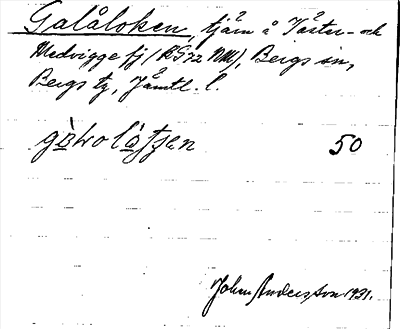 Galåloken, tjärn å Väster- och
Medvigge fj (KS72 NM), Bergs sn,
Bergs tg, Jämtl. l.
50
John Andersson 1931.